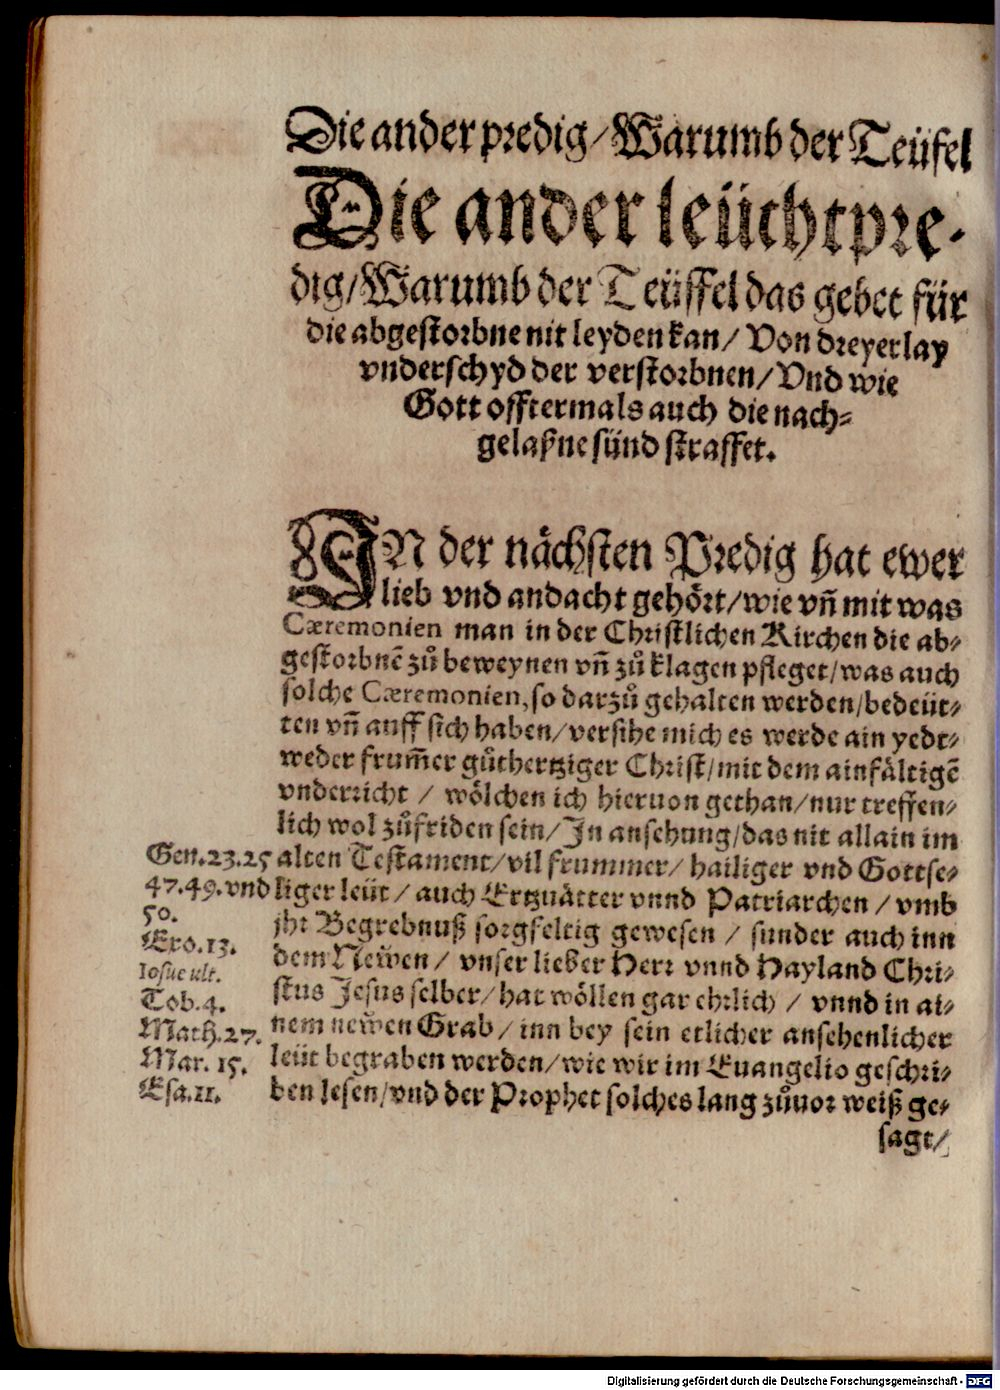 Die ander predig/Warumb der Teüfel
Die ander leüchtpre-
dig/Warumb der Teüffel das gebet für
die abgestorbne nit leyden kan/ Von dreyerlay
vnderschyd der verstorbnen/Vnd wie
Gott offtermals auch die nach-
gelaßne sünd straffet.
IN der nächsten Predig hat ewer
lieb vnd andacht gehört/wie vñ mit was
Cæremonien man in der Christlichen Kirchen die ab-
gestorbnẽ zů beweynen vñ zů klagen pfleget/was auch
solche Cæremonien, so darzů gehalten werden/bedeüt-
ten vñ auff sich haben/versihe mich es werde ain yedt-
weder frum̃er gůthertziger Christ/mit dem ainfältigẽ
vnderricht / wölchen ich hieruon gethan/nur treffen-
lich wol zůfriden sein/In ansehung/das nit allain im
alten Testament/vil frummer/ hailiger vnd Gottse-
liger leüt / auch Ertzuätter vnnd Patriarchen / vmb
jht Begrebnuß sorgfeltig gewesen / sunder auch inn
dem Newen / vnser lieber Herr vnnd Hayland Chri-
stus Jesus selber/ hat wöllen gar ehrlich / vnnd in ai-
nem newen Grab/ inn bey sein etlicher ansehenlicher
leüt begraben werden/wie wir im Euangelio geschri-
ben lesen/vnd der Prophet solches lang zůuor weiß ge-
sagt/
Gen.23.25
47.49.vnd
50.
Exo.13.
Iosue ult.
Tob.4.
Math.27.
Mar. 15.
Esa.11.
Digitalisierung gefördert durch die Deutsche Forschungsgemeinschaft - DFG